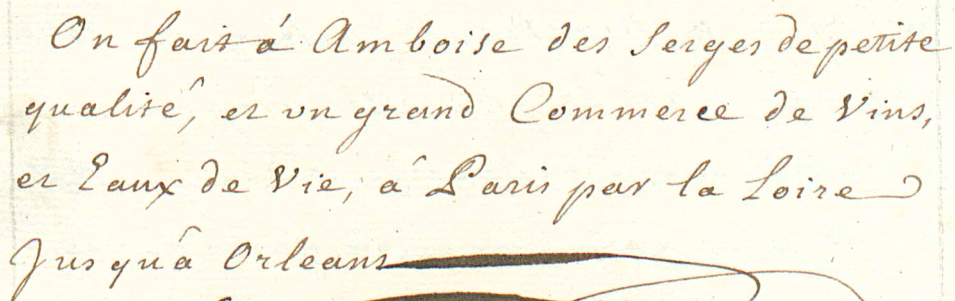 On fait á Amboise des Serges de petite
qualité, et un grand Commerce de Vins,
et Eaux de Vie, â Paris par la Loire
Jusquâ Orleans